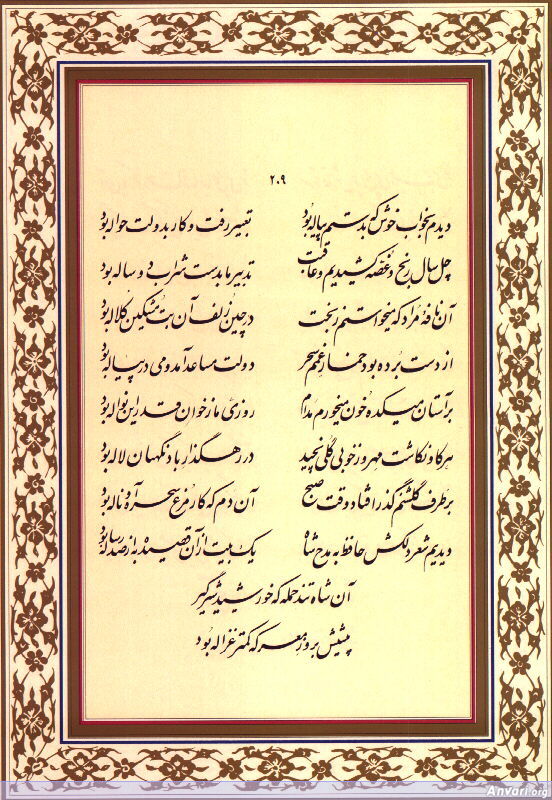 ۲۰۹
دیدم بخواب خوش که بدستم پیاله بود تعبیر رفت و کار بدولت حواله بود
چل سال رنج و غصه کشیدیم و عاقبت تدبیر ما بدست شراب دو ساله بود
آن نافه مراد که میخواستم ز بخت در چین زلف آن بت مشکین کلاله بود
از دست برده بود خمار غمم سحر دولت مساعد آمد و می در پیاله بود
بر آستان میکده خون میخورم مدام روزی ما ز خوان قدر این نواله بود
هر کاو نکاشت مهر و ز خوبی گلی نچید در رهگذار باد نگهبان لاله بود
بر طرف گلشنم گذر افتاد وقت صبح آن دم که کار مرغ سحر آه و ناله بود
دیدیم شعر دلکش حافظ به مدح شاه یک بیت از آن قصیده به از صد رساله بود
آن شاه تند حمله که خورشید شیرگیر
پیشش بروز معرکه کمتر غزاله بود
Anvari.org